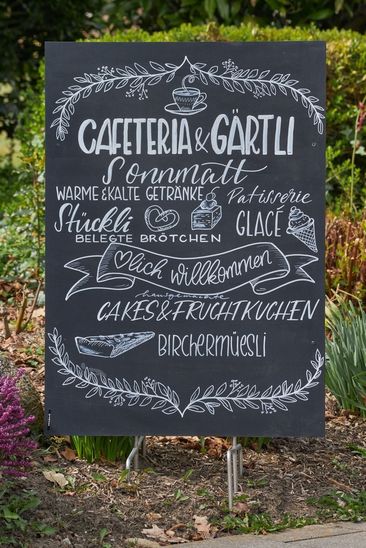 CAFETERIA & GÄRTLI
Sonnmatt
WARME & KALTE GETRÄNKE Patisserie
Stückli GLACÉ
BELEGTE BRÖTCHEN
♡lich willkommen
hausgemachte
CAKES & FRUCHTKUCHEN
BIRCHERMÜESLI